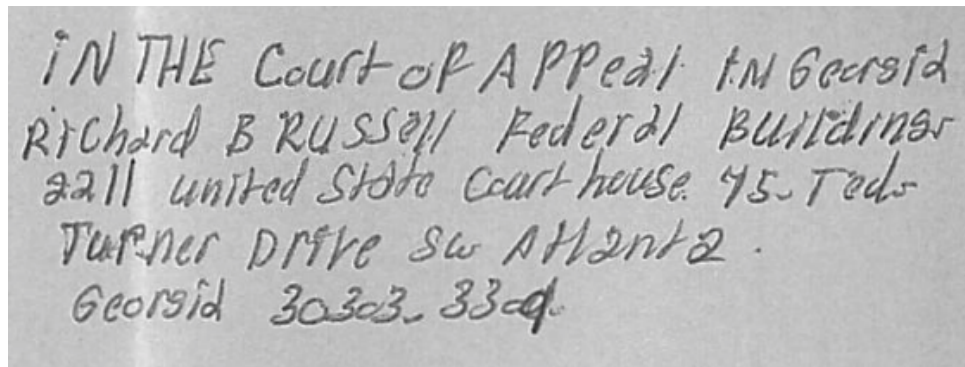 IN THE Court of APPeal IN Georgia
Richard B RUSSell Federal Building
2211 united State Court house. 75. Ted
Turner Drive Sw Atlanta.
Georgia 30303. 3309.